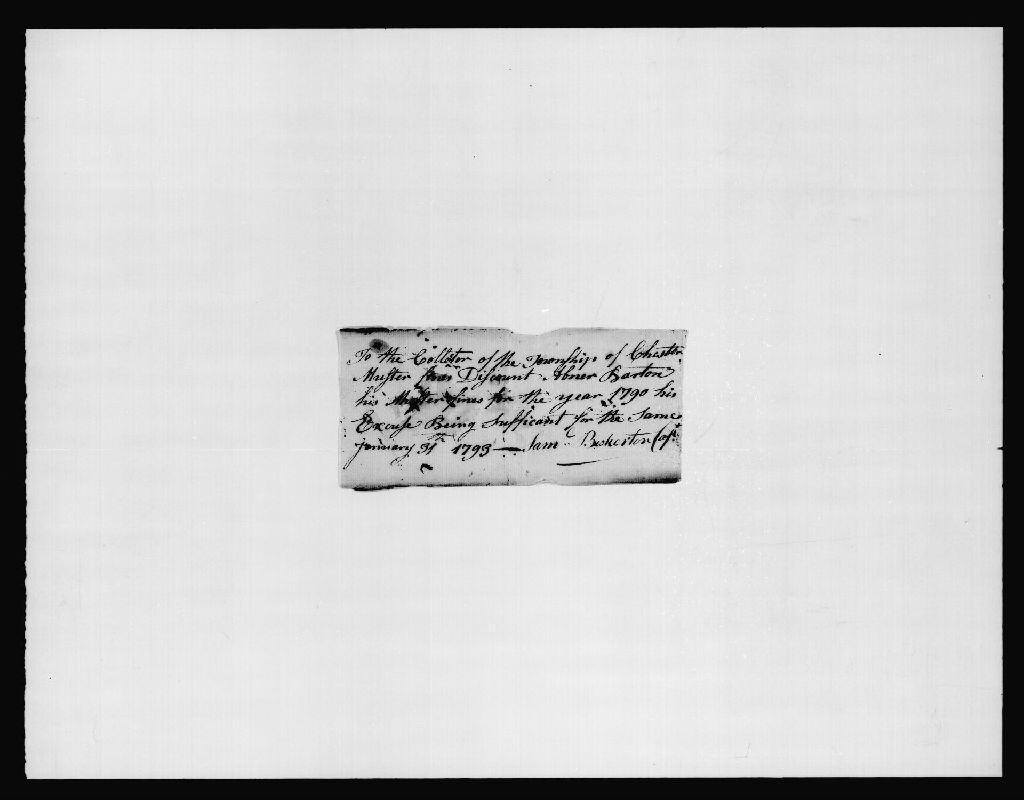 To the Collector of the Township of Chester
Muster fines Discount Abner Barton
his Muster fines for the year 1790 his
Excuse Being Sufficant for the Same
Jenuary 31th 1793 — Sam Capt